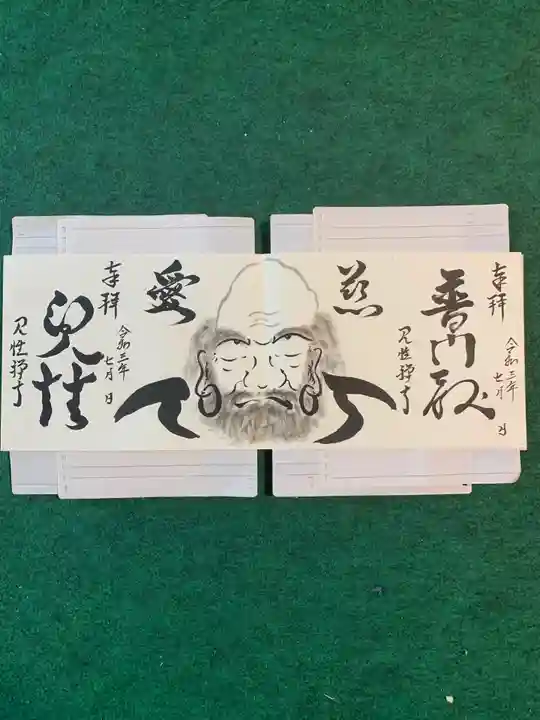 奉拝
普門殿
令和三年
七月 日
見性禅寺
慈
愛
奉拝
令和三年
七月 日
見性禅寺